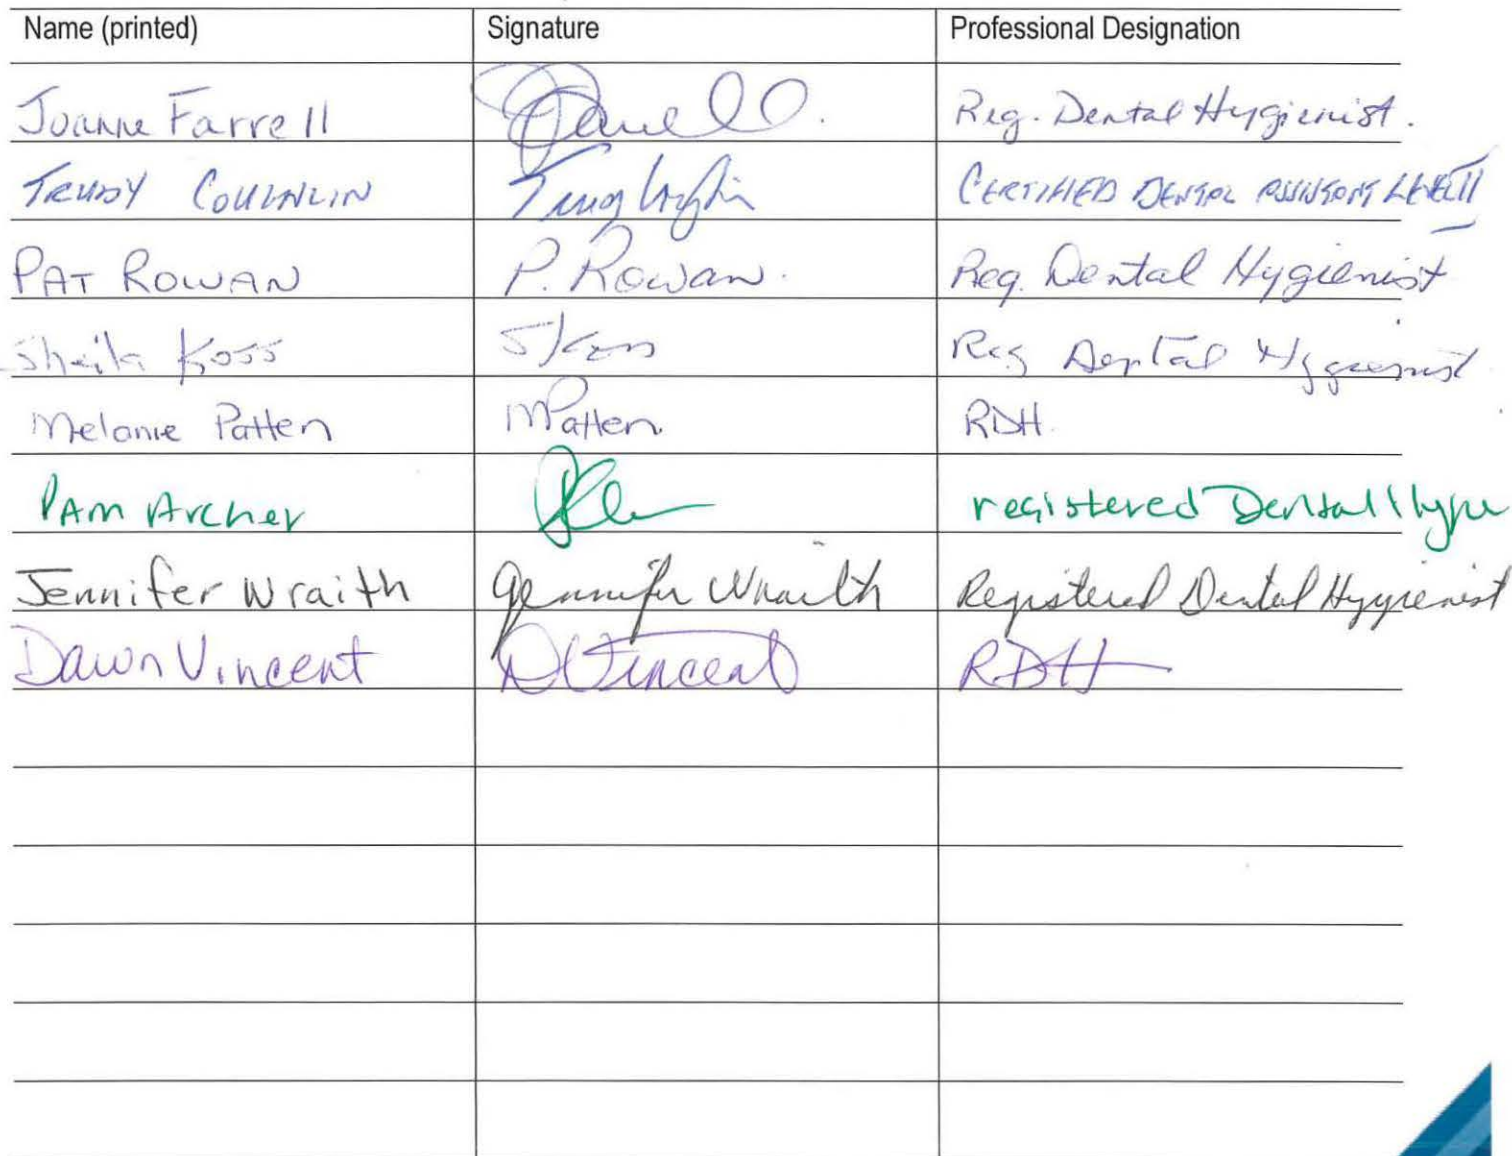 Name (printed) Signature Professional Designation
Joanne Farrell Reg. Dental Hygienist.
TRUDY CERTIFIED DENTAL ASSISTANT LEVEL II
PAT ROWAN P. Rowan. Reg. Dental Hygienist
Sheila Koss SKoss Reg Dental Hygienist
Melanie Patten MPatten RDH.
PAM Archer registered Dental Hype
Jennifer Wraith Jennifer Wraith Registered Dental Hygienist
Dawn Vincent D Vincent RDH